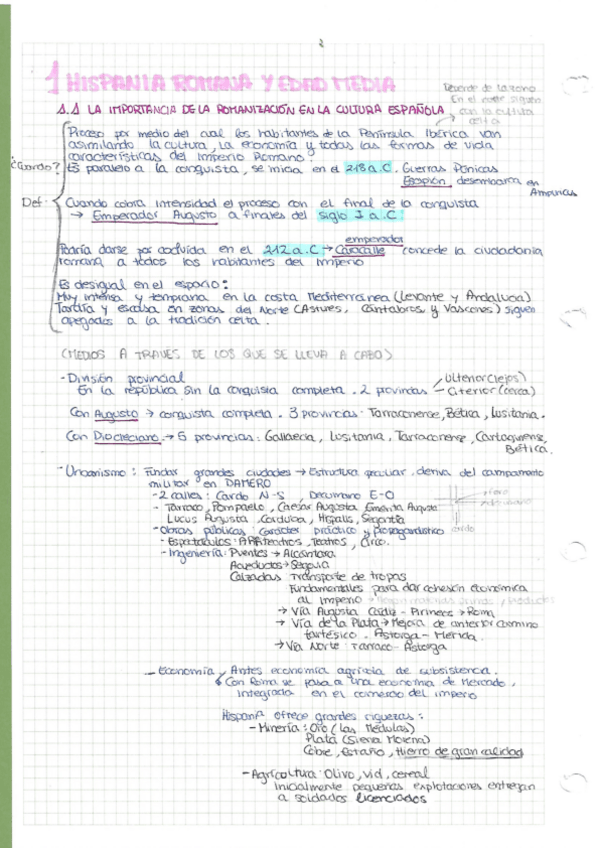 2
1 HISPANIA ROMANA Y EDAD MEDIA
1.1 LA IMPORTANCIA DE LA ROMANIZACIÓN EN LA CULTURA ESPAÑOLA
Depende de la zona
En el norte siguen
con la cultura
celta
Proceso por medio del cual los habitantes de la Península Ibérica van
asimilando la cultura, la economía y todas las formas de vida
características del Imperio Romano.
¿Cuándo? Es paralelo a la conquista, se inicia en el 218 a.C. Guerras Púnicas
Escipión desembarca en
Ampurias
Def: Cuando cobra intensidad el proceso con el final de la conquista
→ Emperador Augusto a finales del siglo I a.C
emperador
Podría darse por concluida en el 212 a.C → Caracalla concede la ciudadanía
romana a todos los habitantes del Imperio
Es desigual en el espacio:
Muy intensa y temprana en la costa Mediterránea (Levante y Andalucía)
Tardía y escasa en zonas del Norte (Astures, Cántabros y Vascones) siguen
apegados a la tradición celta.
(MEDIOS A TRAVES DE LOS QUE SE LLEVA A CABO)
- División provincial
En la república sin la conquista completa. 2 provincias
Ulterior (lejos)
Citerior (cerca)
Con Augusto → conquista completa. 3 provincias: Tarraconense, Bética, Lusitania.
Con Diocleciano → 5 provincias: Gallaecia, Lusitania, Tarraconense, Cartaginense,
Bética.
- Urbanismo: Fundar grandes ciudades → Estructura peculiar, deriva del campamento
militar en DAMERO
- 2 calles: Cardo N-S Decumano E-O
- Tarraco, Pompaelo, Caesar Augusta, Emerita Augusta
Lucus Augusta, Corduba, Hispalis, Segontia
- Obras públicas: Carácter práctico y propagandístico
cardo
- Espectáculos: Anfiteatros, Teatros, Circo.
- Ingeniería: Puentes → Alcántara
Acueductos → Segovia
Calzadas Transporte de tropas
Fundamentales para dar cohesión económica
al Imperio
→ Vía Augusta Cádiz - Pirineos → Roma
→ Vía de la Plata → Mejora de anterior camino
tartésico. Astorga - Mérida.
→ Vía Norte: Tarraco - Astorga
- Economía Antes economía agrícola de subsistencia.
Con Roma se pasa a una economía de Mercado,
integrada en el comercio del imperio
Hispania ofrece grandes riquezas:
- Minería: Oro (Las Médulas)
Plata (Sierra Morena)
Cobre, Estaño, Hierro de gran calidad
- Agricultura: Olivo, vid, cereal
Inicialmente pequeñas explotaciones entregan
a soldados licenciados